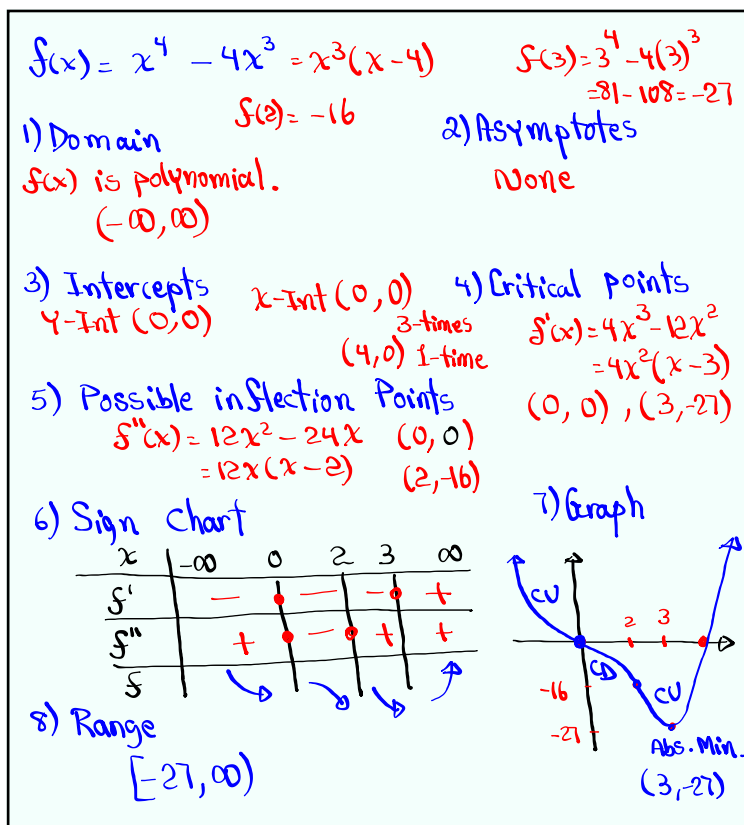 f(x) = x⁴ - 4x³ = x³(x-4)
f(3)=3⁴-4(3)³
=81-108=-27
f(2)=-16
1) Domain
f(x) is polynomial.
(-∞,∞)
2) Asymptotes
None
3) Intercepts
Y-Int (0,0)
X-Int (0,0)
3-times
(4,0) 1-time
4) Critical points
f'(x)=4x³-12x²
=4x²(x-3)
(0,0), (3,-27)
5) Possible inflection Points
f"(x)=12x²-24x (0,0)
=12x(x-2) (2,-16)
6) Sign Chart
x -∞ 0 2 3 ∞
f' - - - +
f" + - + +
f
7) Graph
CU
2 3
CD
CU
-16
-27
Abs. Min.
(3,-27)
8) Range
[-27,∞)